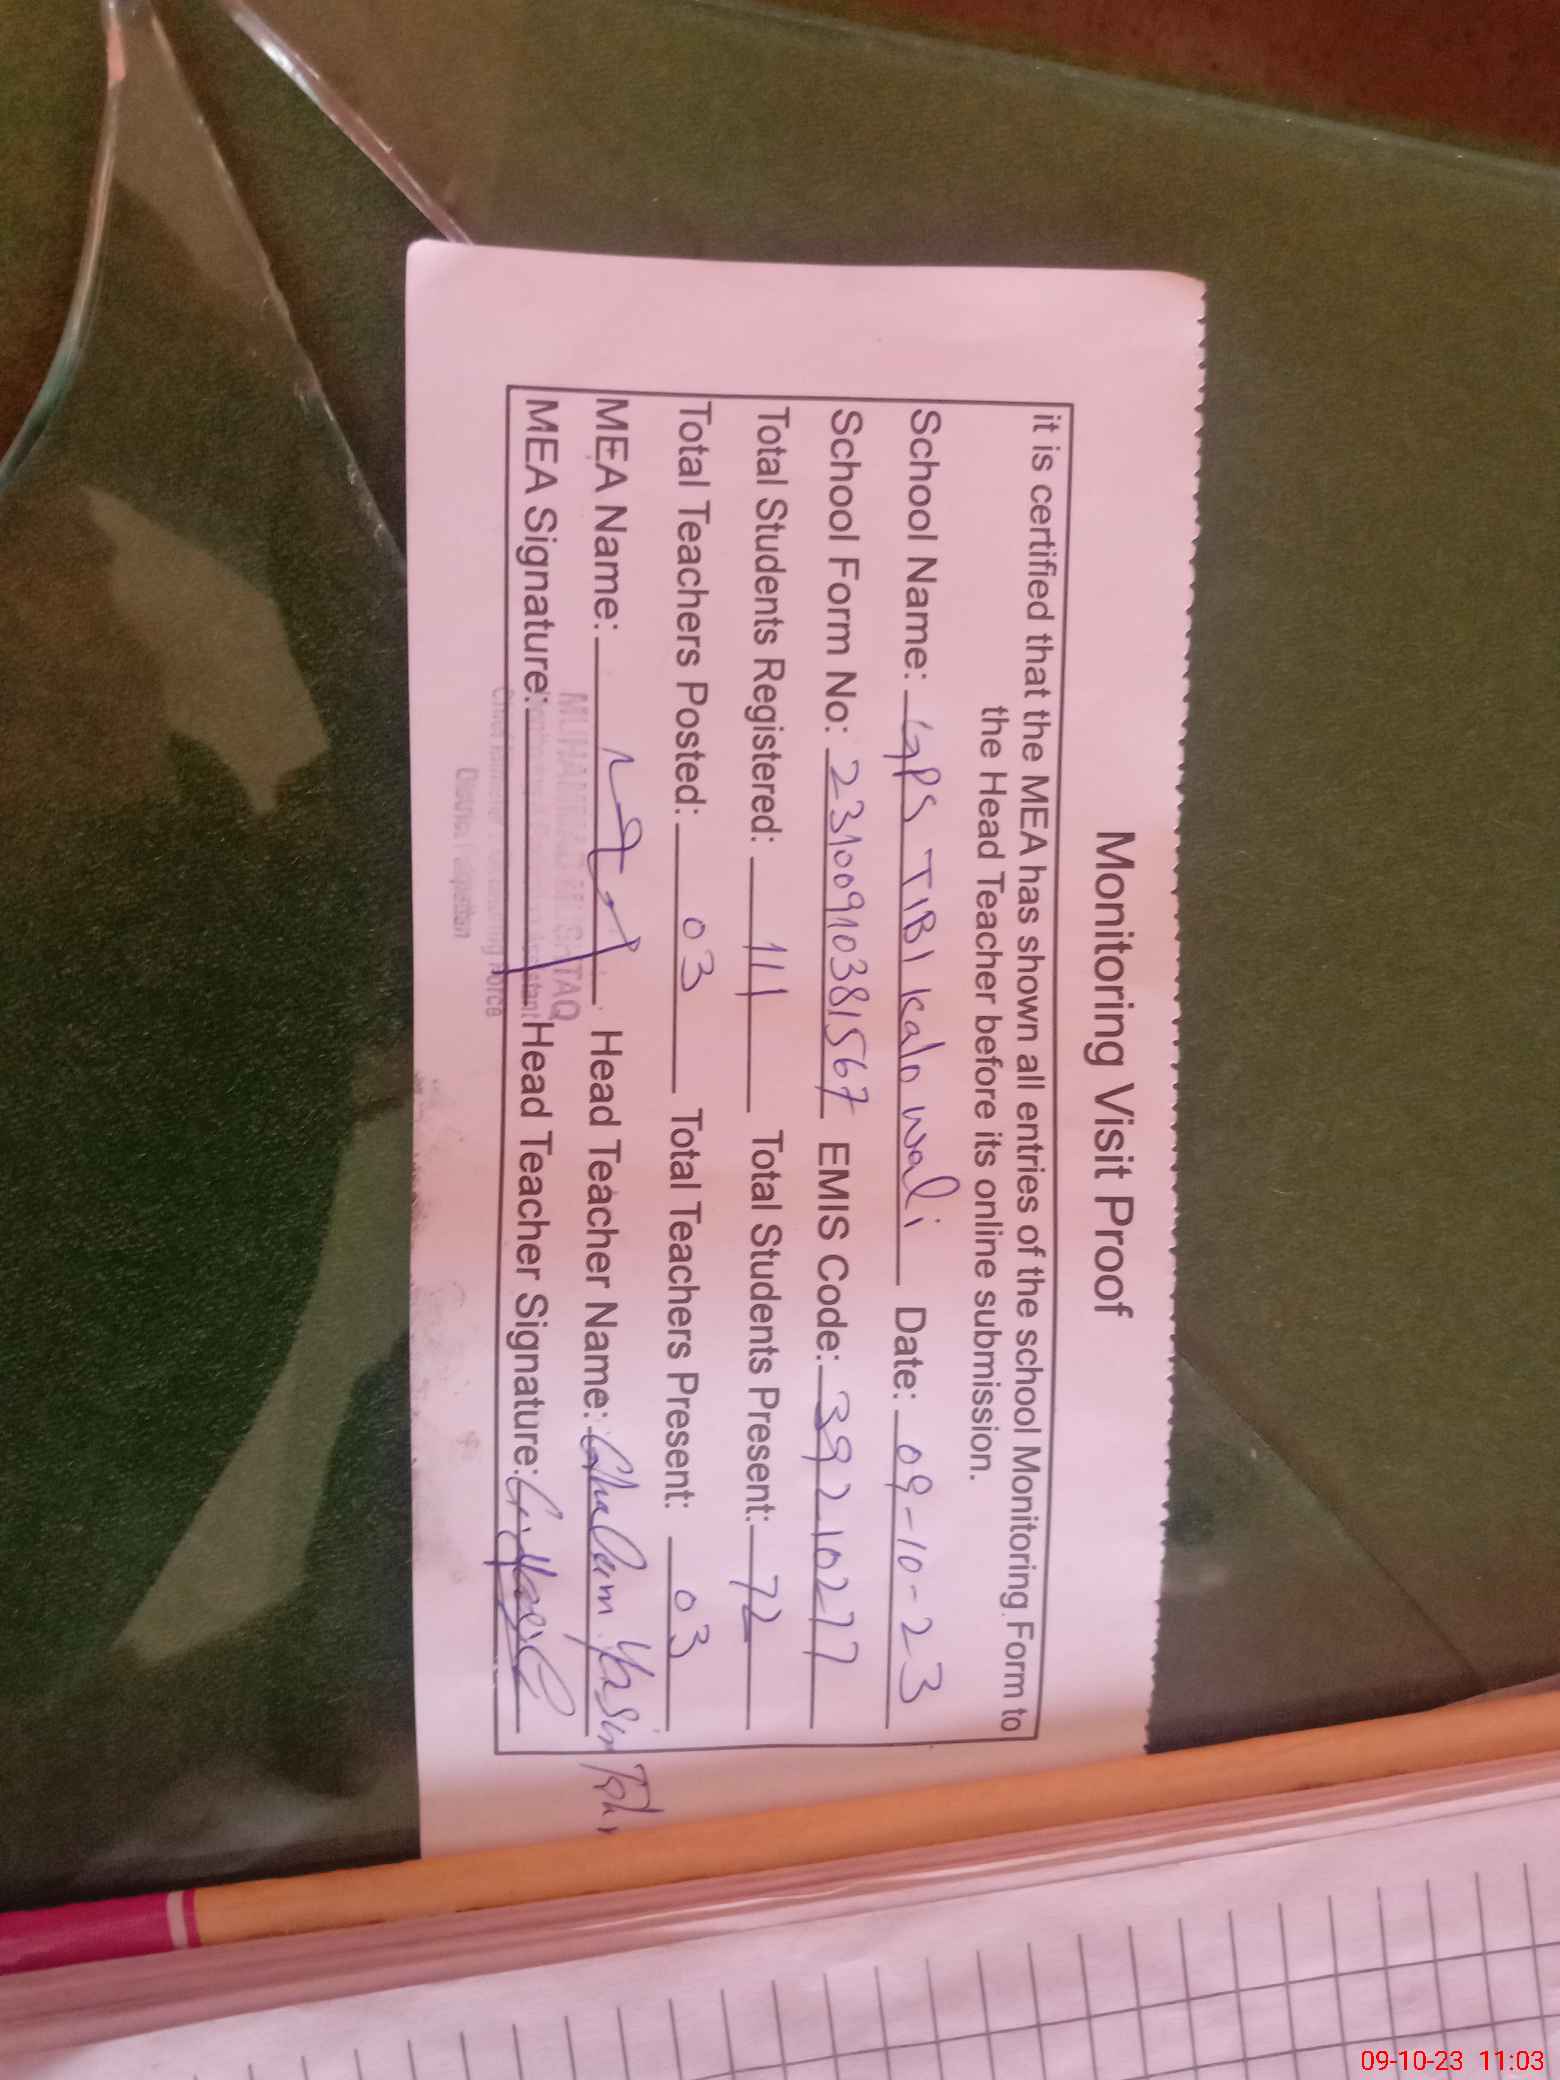 Monitoring Visit Proof
it is certified that the MEA has shown all entries of the school Monitoring Form to
the Head Teacher before its online submission.
School Name: GPS TIBI Kalo wali Date: 09-10-23
School Form No: 23100910381567 EMIS Code: 39210277
Total Students Registered: 111 Total Students Present: 72
Total Teachers Posted: 03 Total Teachers Present: 03
MEA Name: Head Teacher Name: Ghulam Yasin
MUHAMMAD MUSHTAQ
MEA Signature: Head Teacher Signature:
District Pakpattan
09-10-23 11:03